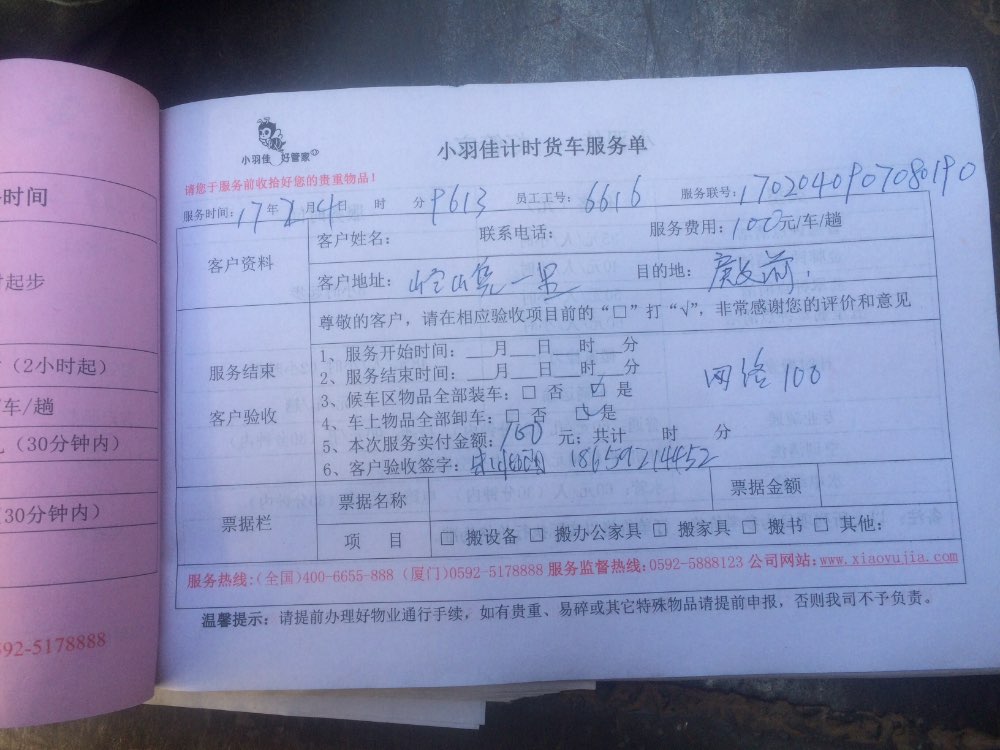 小羽佳 好管家
小羽佳计时货车服务单
请您于服务前收拾好您的贵重物品！
服务时间：17年2月4日 时 分 9613 员工工号：6616 服务联号：1702040907080190
客户资料
客户姓名： 联系电话： 服务费用：100元/车/趟
客户地址： 目的地：殿前
尊敬的客户，请在相应验收项目前的“□”打“√”，非常感谢您的评价和意见
服务结束
客户验收
1、服务开始时间：__月__日__时__分
2、服务结束时间：__月__日__时__分
3、候车区物品全部装车：□ 否 ☑ 是
4、车上物品全部卸车：□ 否 ☑ 是
5、本次服务实付金额：100 元；共计 时 分
6、客户验收签字： 18659214452
网络100
票据栏
票据名称 票据金额
项 目 □ 搬设备 □ 搬办公家具 □ 搬家具 □ 搬书 □ 其他：
服务热线：(全国)400-6655-888 (厦门)0592-5178888 服务监督热线：0592-5888123 公司网站：www.xiaoyujia.com
温馨提示：请提前办理好物业通行手续，如有贵重、易碎或其它特殊物品请提前申报，否则我司不予负责。
时间
时起步
（2小时起）
车/趟
（30分钟内）
（30分钟内）
592-5178888